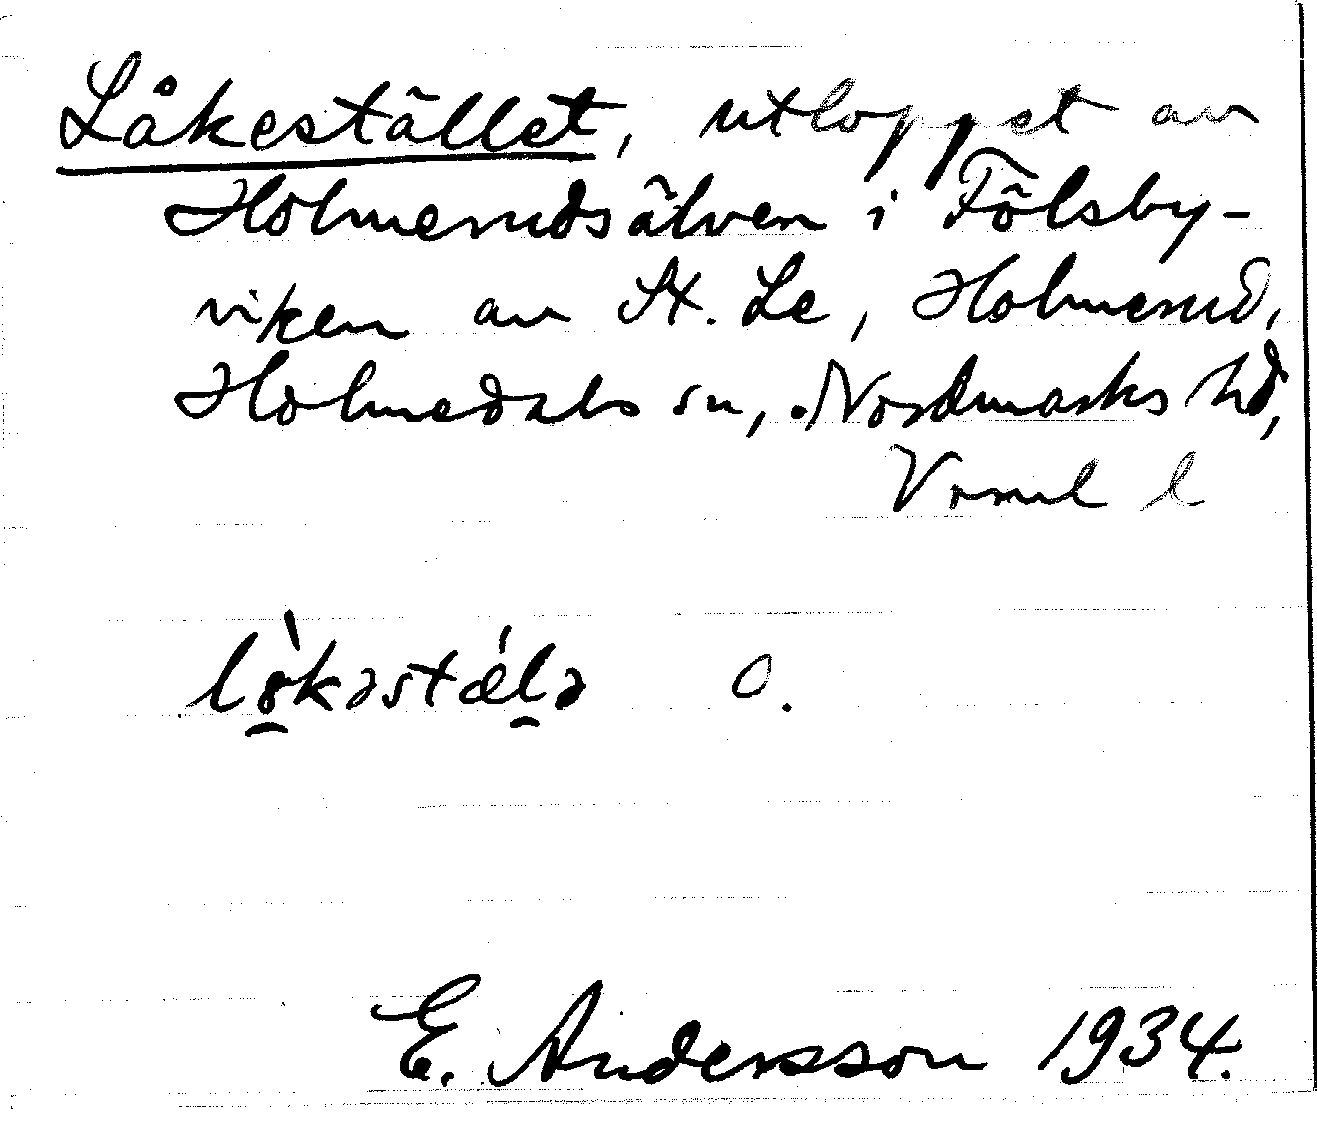 Låkestället, utloppet av
Holmerudsälven i Fölsby-
viken av St. Le, Holmerud,
Holmedals sn, Nordmarks hd,
Vrml l
lò̱kəstǽḻə O.
E. Andersson 1934.